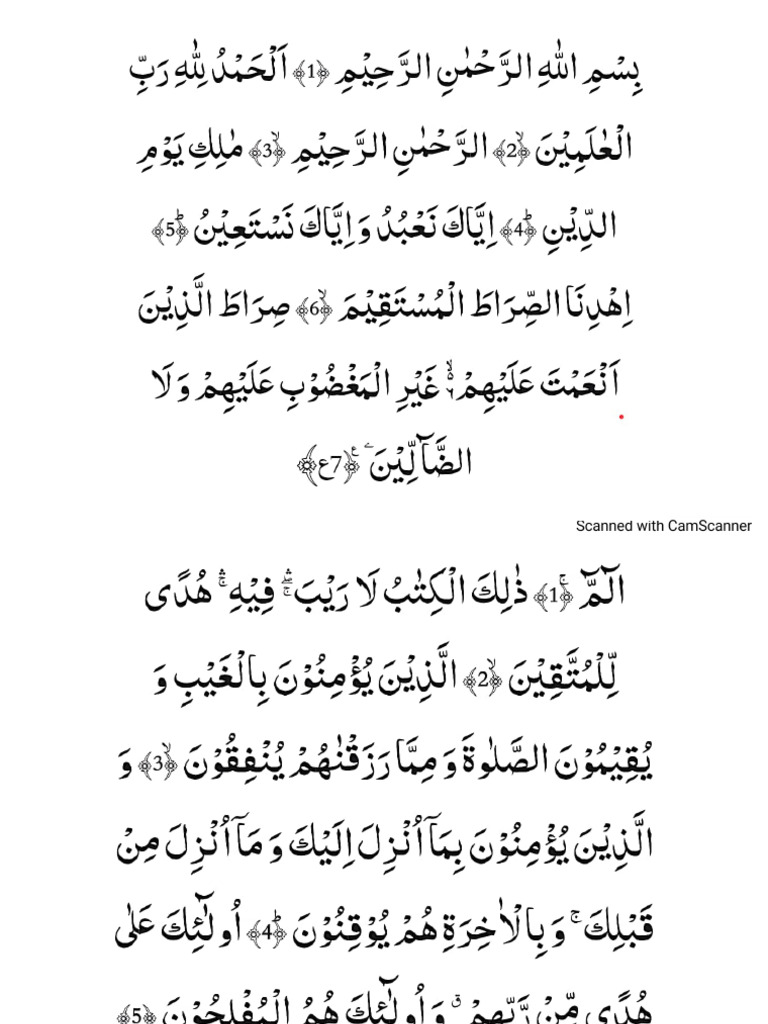 بِسْمِ اللّٰهِ الرَّحْمٰنِ الرَّحِیْمِ ﴿1﴾ اَلْحَمْدُ لِلّٰهِ رَبِّ
الْعٰلَمِیْنَ ﴿2ۙ﴾ الرَّحْمٰنِ الرَّحِیْمِ ﴿3ۙ﴾ مٰلِكِ یَوْمِ
الدِّیْنِ ﴿4ؕ﴾ اِیَّاكَ نَعْبُدُ وَ اِیَّاكَ نَسْتَعِیْنُ ﴿5ؕ﴾
اِهْدِنَا الصِّرَاطَ الْمُسْتَقِیْمَ ﴿6ۙ﴾ صِرَاطَ الَّذِیْنَ
اَنْعَمْتَ عَلَیْهِمْ ۙ۬ۦ غَیْرِ الْمَغْضُوْبِ عَلَیْهِمْ وَ لَا
الضَّآلِّیْنَ ۠ ﴿7ع﴾
Scanned with CamScanner
الٓمّٓ ﴿1ۚ﴾ ذٰلِكَ الْكِتٰبُ لَا رَیْبَ ۛۖۚ فِیْهِ ۛۚ هُدًی
لِّلْمُتَّقِیْنَ ﴿2ۙ﴾ الَّذِیْنَ یُؤْمِنُوْنَ بِالْغَیْبِ وَ
یُقِیْمُوْنَ الصَّلٰوةَ وَ مِمَّا رَزَقْنٰهُمْ یُنْفِقُوْنَ ﴿3ۙ﴾ وَ
الَّذِیْنَ یُؤْمِنُوْنَ بِمَاۤ اُنْزِلَ اِلَیْكَ وَ مَاۤ اُنْزِلَ مِنْ
قَبْلِكَ ۚ وَ بِالْاٰخِرَةِ هُمْ یُوْقِنُوْنَ ﴿4ؕ﴾ اُولٰٓئِكَ عَلٰی
هُدًی مِّنْ رَّبِّهِمْ ۗ وَ اُولٰٓئِكَ هُمُ الْمُفْلِحُوْنَ ﴿5﴾